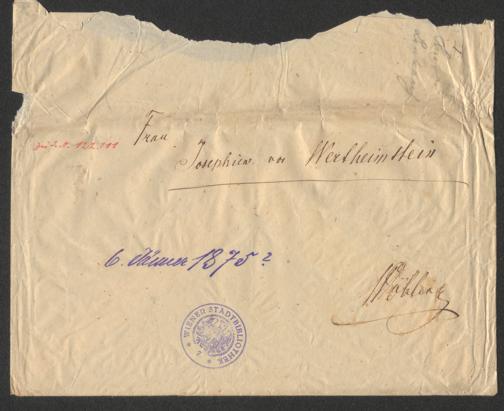 Frau
Josephine von Wertheimstein
6. Jänner 1875?
Döbling
WIENER STADTBIBLIOTHEK